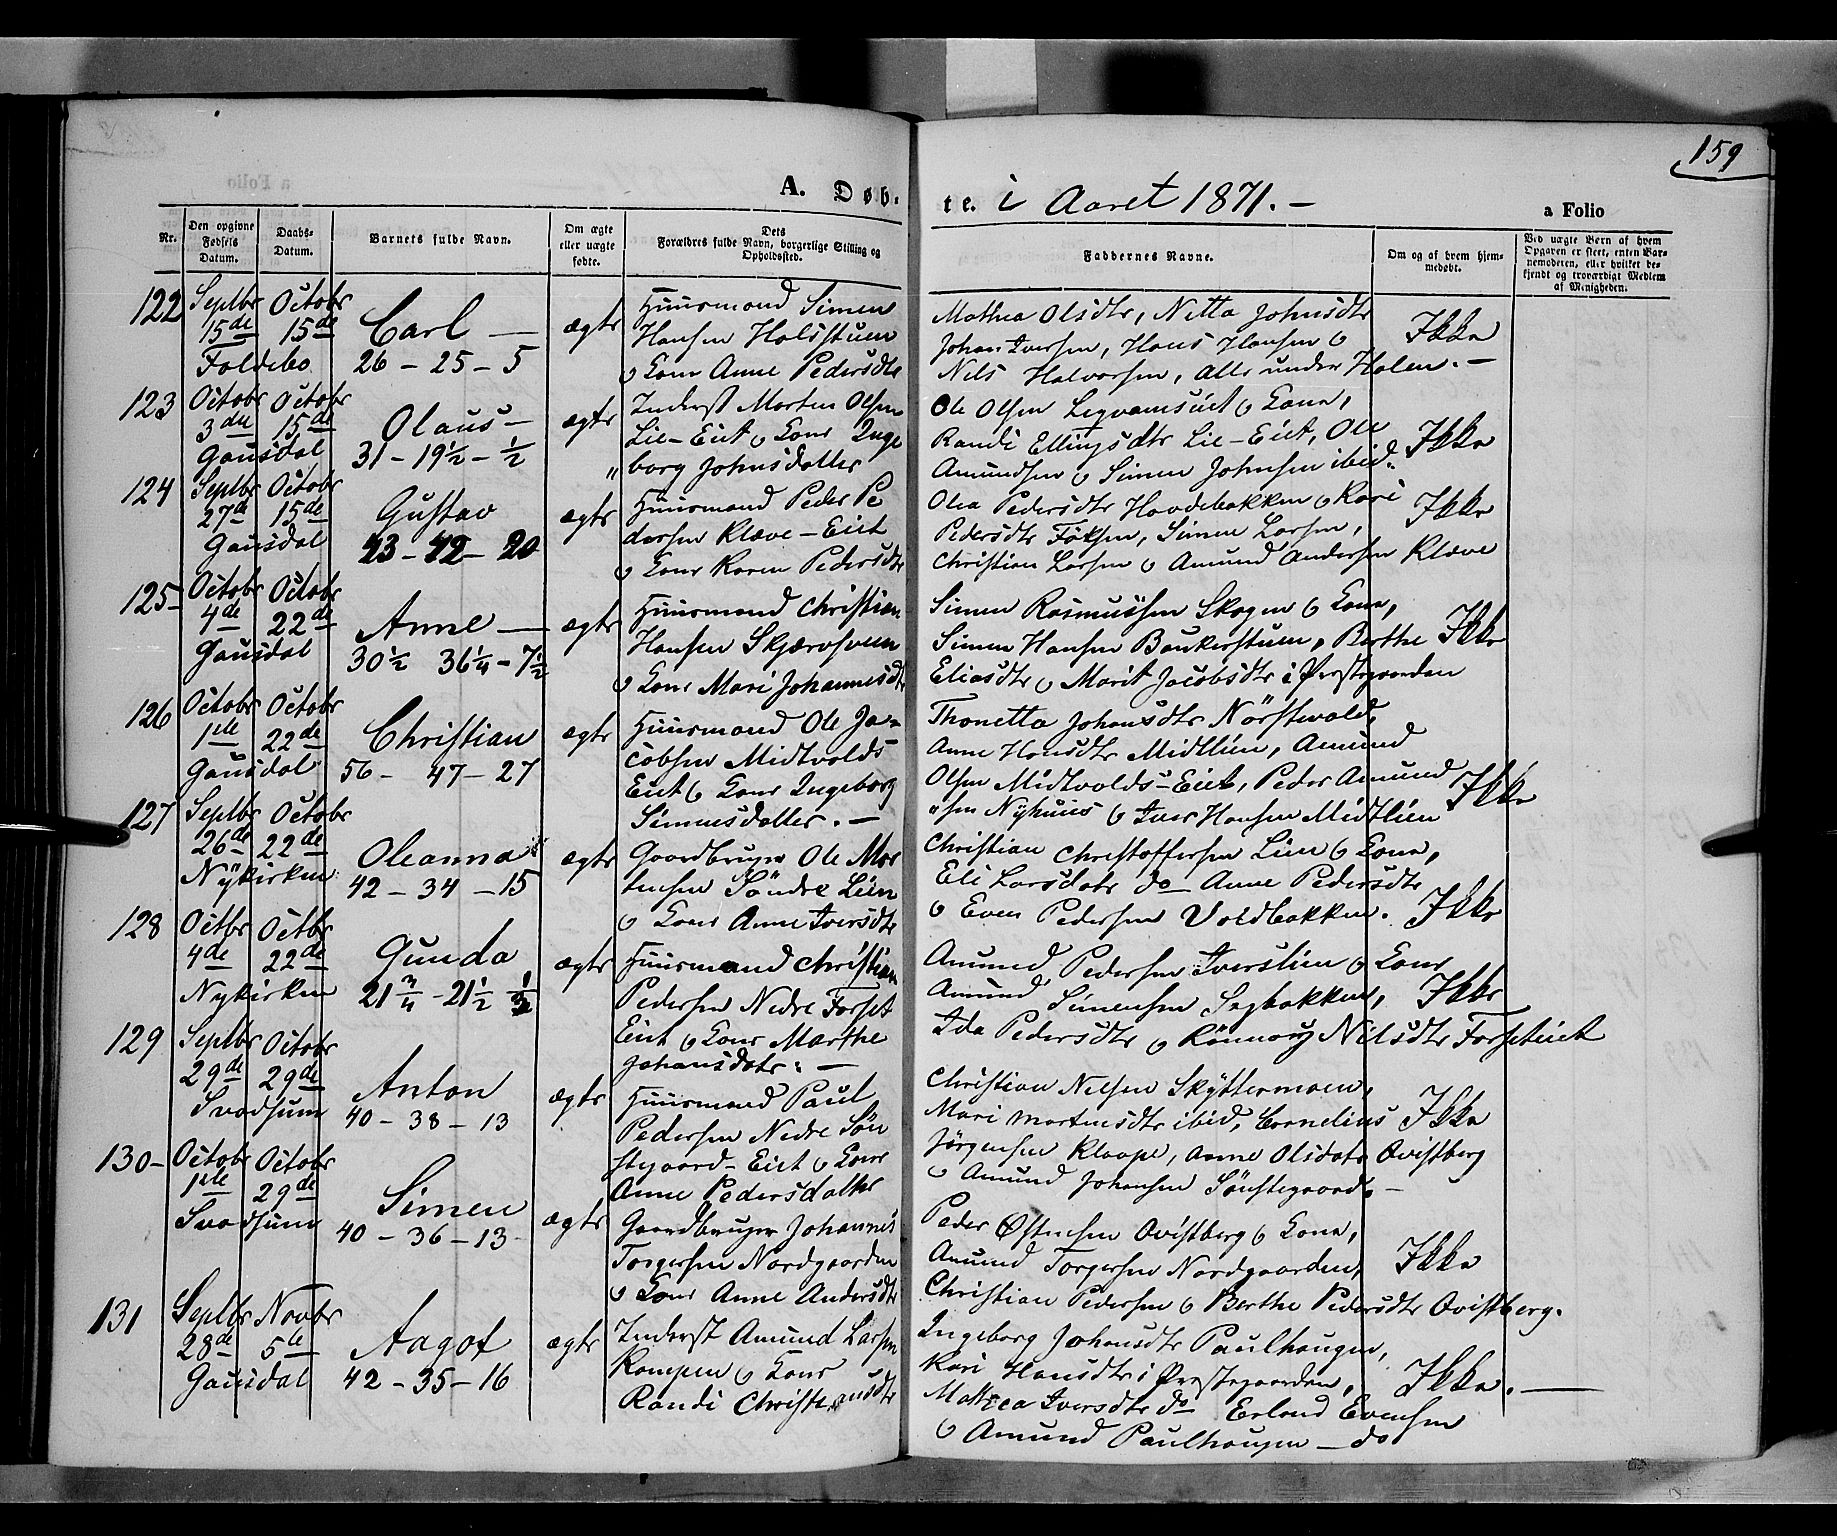 159
A. Døb-
te. i Aaret 1871. -
a Folio
Nr.
Den opgivne Fødsels Datum.
Daabs-Datum.
Barnets fulde Navn.
Om ægte eller uægte fødte.
Dets Forældres fulde Navn, borgerlige Stilling og Opholdssted.
Faddernes Navne.
Om og af hvem hjemmedøbt.
Ved uægte Børn af hvem Opgaven er skeet, enten Barnemoderen, eller hvilket bekjendt og troværdigt Medlem af Menigheden.
122
Septbr 15de
Foldebo
Octobr 15de
Carl —
26 - 25 - 5
ægte
Huusmand Simen
Hansen Holsstuen
o Kone Anne Pedersdtr
Mathea Olsdtr, Netta Johnsdtr
Johan Iversen, Hans Hansen o
Nils Halvorsen, Alle under Holen. -
Ikke
123
Octobr 3die
Gausdal
Octobr 15de
Olaus -
31 - 19½ - ½
ægte
Inderst Morten Olsen
Lie-Eiet o Kone Inge
" borg Johnsdatter
Ole Olsen Legvamseiet o Kone,
Randi Ellingsdtr Lie-Eiet, Ole
Amundsen o Simen Johnsen ibid.
Ikke
124
Septbr 27de
Gausdal
Octobr 15de
Gustav
43 - 42 - 20
ægte
Huusmand Peder Pe
dersen Kleve-Eiet
o Kone Karen Pedersdtr
Olea Pedersdtr Hovdebakken o Kari
Pedersdtr Foksen, Simen Larsen,
Christian Larsen o Amund Andersen Kleve
Ikke
125-
Octobr 4de
Gausdal
Octobr 22de
Anne —
30½ 36¼ - 7½
ægte
Huusmand Christian
Hansen Skjærvsveen
o Kone Mari Johannesdtr
Simen Rasmussen Skogen o Kone,
Simen Hansen Baukerstuen, Berthe
Eliasdtr o Marit Jacobsdtr i Præstegaarden
Ikke
126
Octobr 1ste
Gausdal
Octobr 22de
Christian
56 - 47 - 27
ægte
Huusmand Ole Ja-
cobsen Midtvolds
Eiet o Kone Ingeborg
Simensdatter. -
Thonetta Johansdtr Nörstevold,
Anne Hansdtr Midtlien, Amund
Olsen Midtvolds-Eiet, Peder Amund
"sen Nyhuus o Iver Hansen Midtlien
Ikke
127
Septbr 26de
Nykirken
Octobr 22de
Oleanna
42 - 34 - 15
ægte
Gaardbruger Ole Mor
tensen Söndre Lien
o Kone Anne Iversdtr
Christian Christoffersen Lien o Kone,
Eli Larsdatr do Anne Pedersdtr
o Even Pedersen Voldbakken.
Ikke
128
Octbr 4de
Nykirken
Octbr 22de
Gunda
21¾ - 21½ ½
ægte
Huusmand Christian
Pedersen Nedre Forset
Eiet o Kone Marthe
Johansdatr. -
Amund Pedersen Iverslien o Kone
Amund Simensen Segbakken,
Ida Pedersdtr o Rönnoug Nilsdtr Forseteiet
Ikke
129
Septbr 29de
Svadsum
Octobr 29de
Anton
40 - 38 - 13
ægte
Huusmand Paul
Pedersen Nedre Sön
stegaard-Eiet o Kone
Anne Pedersdatter
Christian Nilsen Skyttermoen,
Mari Mortensdtr ibid, Cornelius
Jörgensen Kloape, Anne Olsdatr Qvistberg
o Amund Johansen Sönstegaard -
Ikke
130-
Octobr 1ste
Svadsum
Octobr 29de
Simen
40 - 36 - 13
ægte
Gaardbruger Johannes
Torgersen Nordgaarden
o Kone Anne Andersdtr
Peder Østensen Qvistberg o Kone,
Amund Torgersen Nordgaarden,
Christian Pedersen o Berthe Pedersdtr Qvistberg.
Ikke
131
Septbr 28de
Gausdal
Novbr 5te
Aagot
42 - 35 - 16
ægte
Inderst Amund Larsen
Kampen o Kone
Randi Christensdtr
Ingeborg Johansdtr Paulhaugen,
Kari Hansdtr i Præstegaarden,
Mathea Iversdtr do Erland Evensen
o Amund Paulhaugen — do
Ikke. —